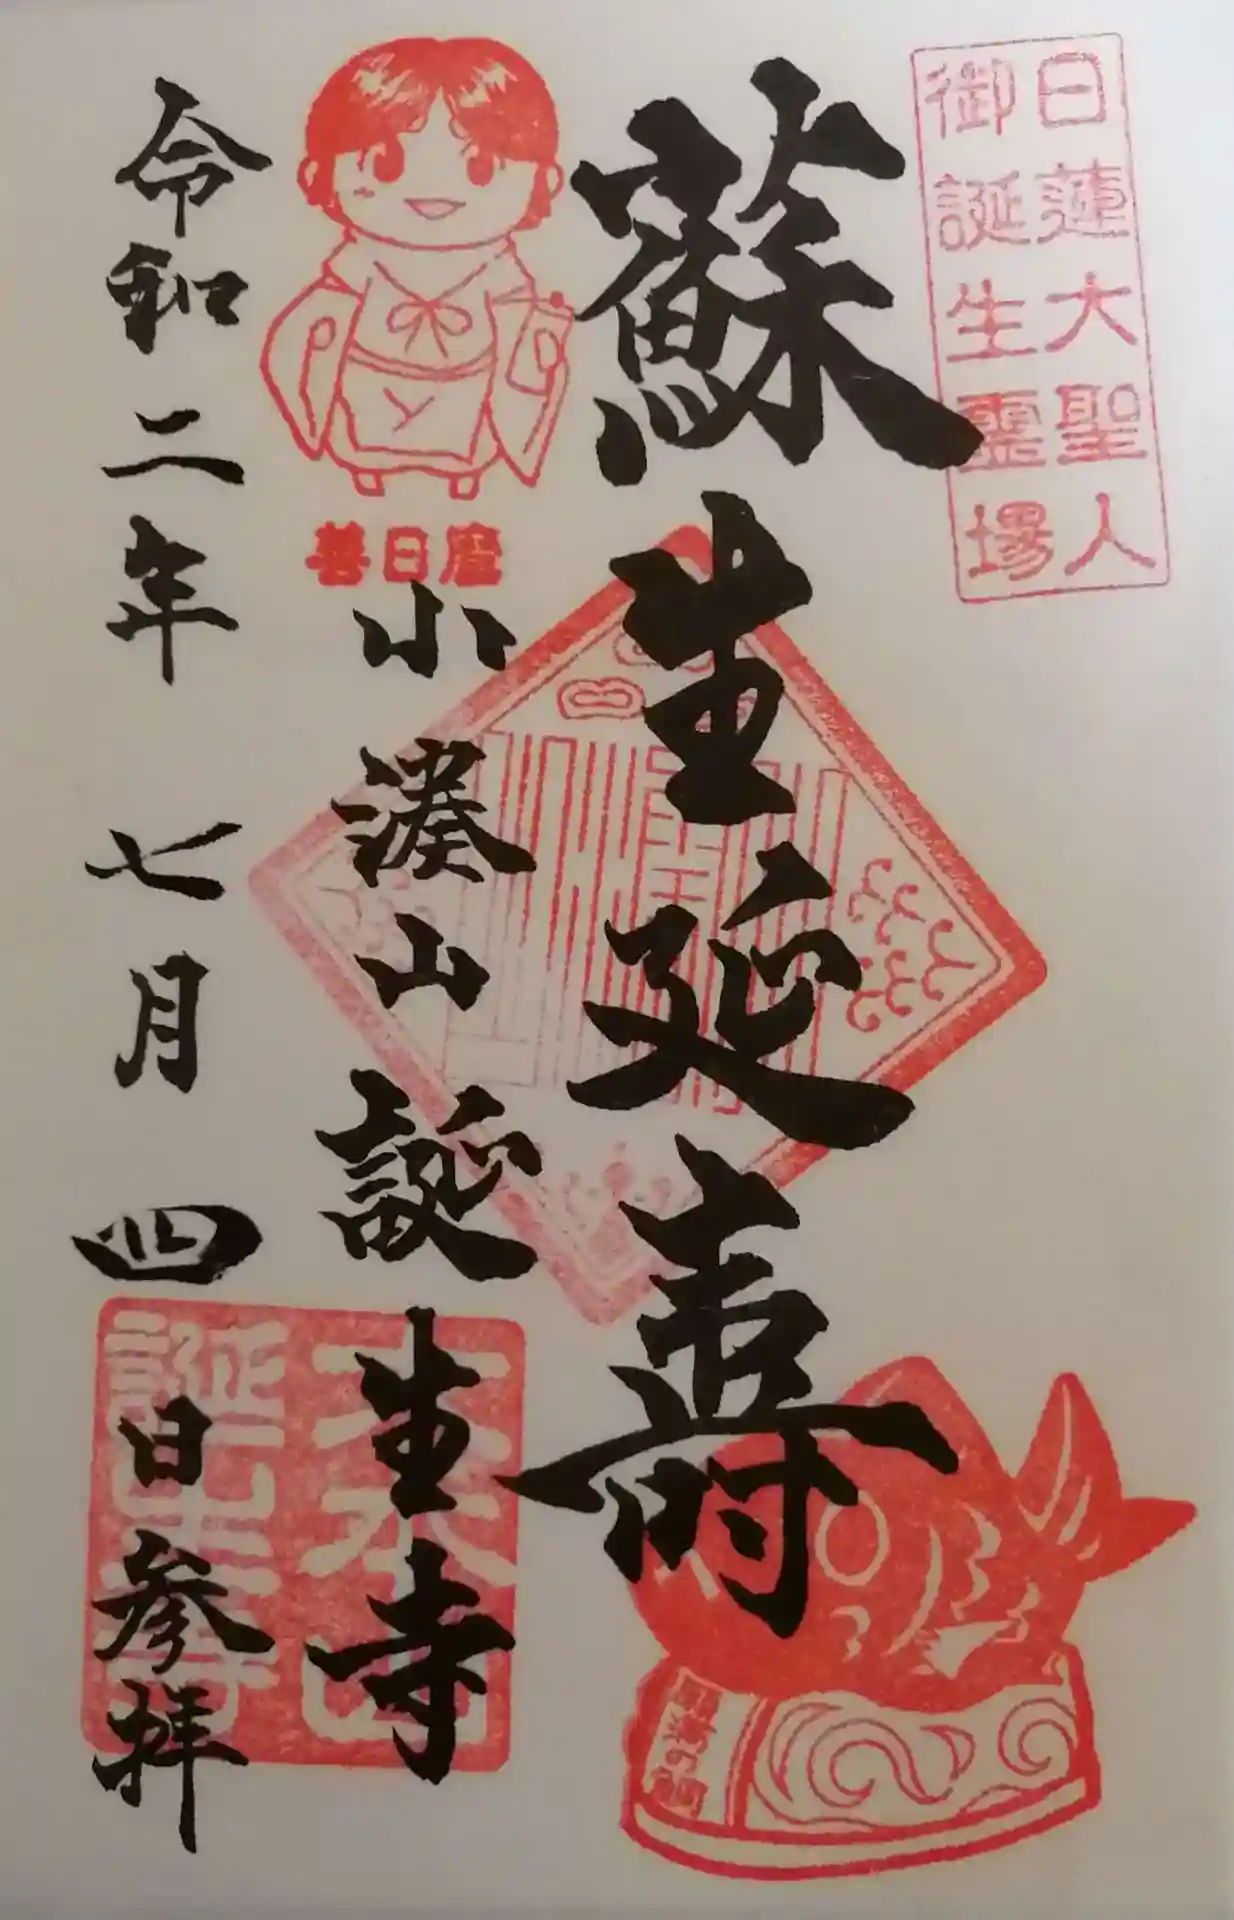 日蓮大聖人
御誕生霊場
蘇生延壽
善日麿
小湊山誕生寺
令和二年 七月四日参拝
誕生寺